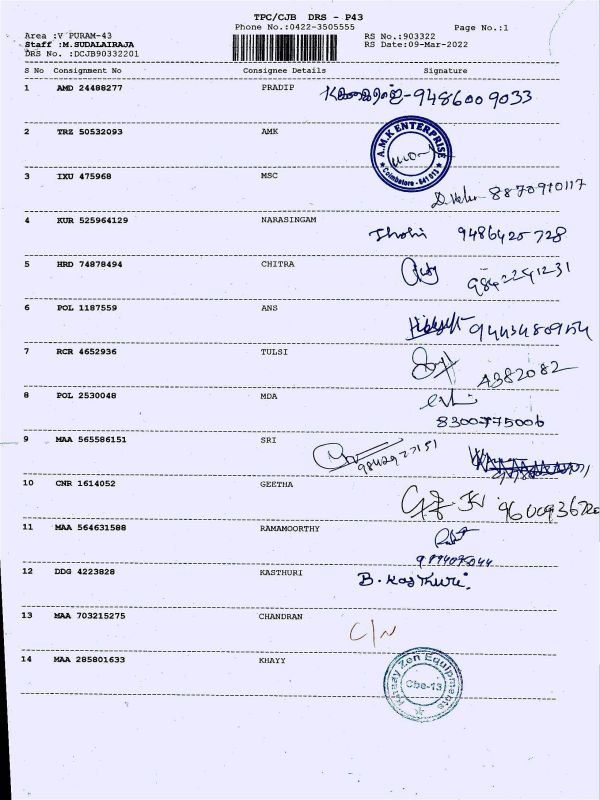 TPC/CJB DRS - P43
Phone No.:0422-3505555 Page No.:1
Area :V PURAM-43
Staff :M.SUDALAIRAJA RS No.:903322
DRS No. :DCJB90332201 RS Date:09-Mar-2022
S No Consignment No Consignee Details Signature
1 AMD 24488277 PRADIP -9486009033
2 TRZ 50532093 AMK A.M.K ENTERPRISE Coimbatore - 641 013
3 IXU 475968 MSC 8870910117
4 KUR 525964129 NARASINGAM 9486425728
5 HRD 74878494 CHITRA 9842241231
6 POL 1187559 ANS
7 RCR 4652936 TULSI 4382082
8 POL 2530048 MDA
8300775006
9 MAA 565586151 SRI 9842927151
10 CNR 1614052 GEETHA
11 MAA 564631588 RAMAMOORTHY
12 DDG 4223828 KASTHURI B. Kasthuri.
13 MAA 703215275 CHANDRAN C/N
14 MAA 285801633 KHAYY Zen Equipments Cbe-13